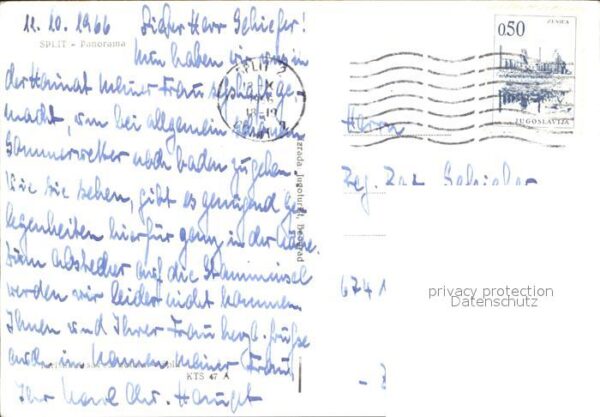 11.10.1966 Lieber Herr Schiefer!
SPLIT - Panorama
Nun haben wir uns in
der Heimat meiner Frau seßhaft ge
macht, um bei allgemein schönem
Sommerwetter noch baden zu gehen.
Wie Sie sehen, gibt es genügend Ge
legenheiten hierfür ganz in der Nähe.
Zum Abstecher auf die Stamminsel
werden wir leider nicht kommen.
Ihnen und Ihrer Frau herzl. Grüße
auch im Namen meiner Frau,
Ihr Karl Chr.
KTS 47 A
Jugoturist, Beograd
SPLIT 2
ZENICA
0,50
JUGOSLAVIJA
Herrn
Reg. Rat
674
privacy protection
Datenschutz